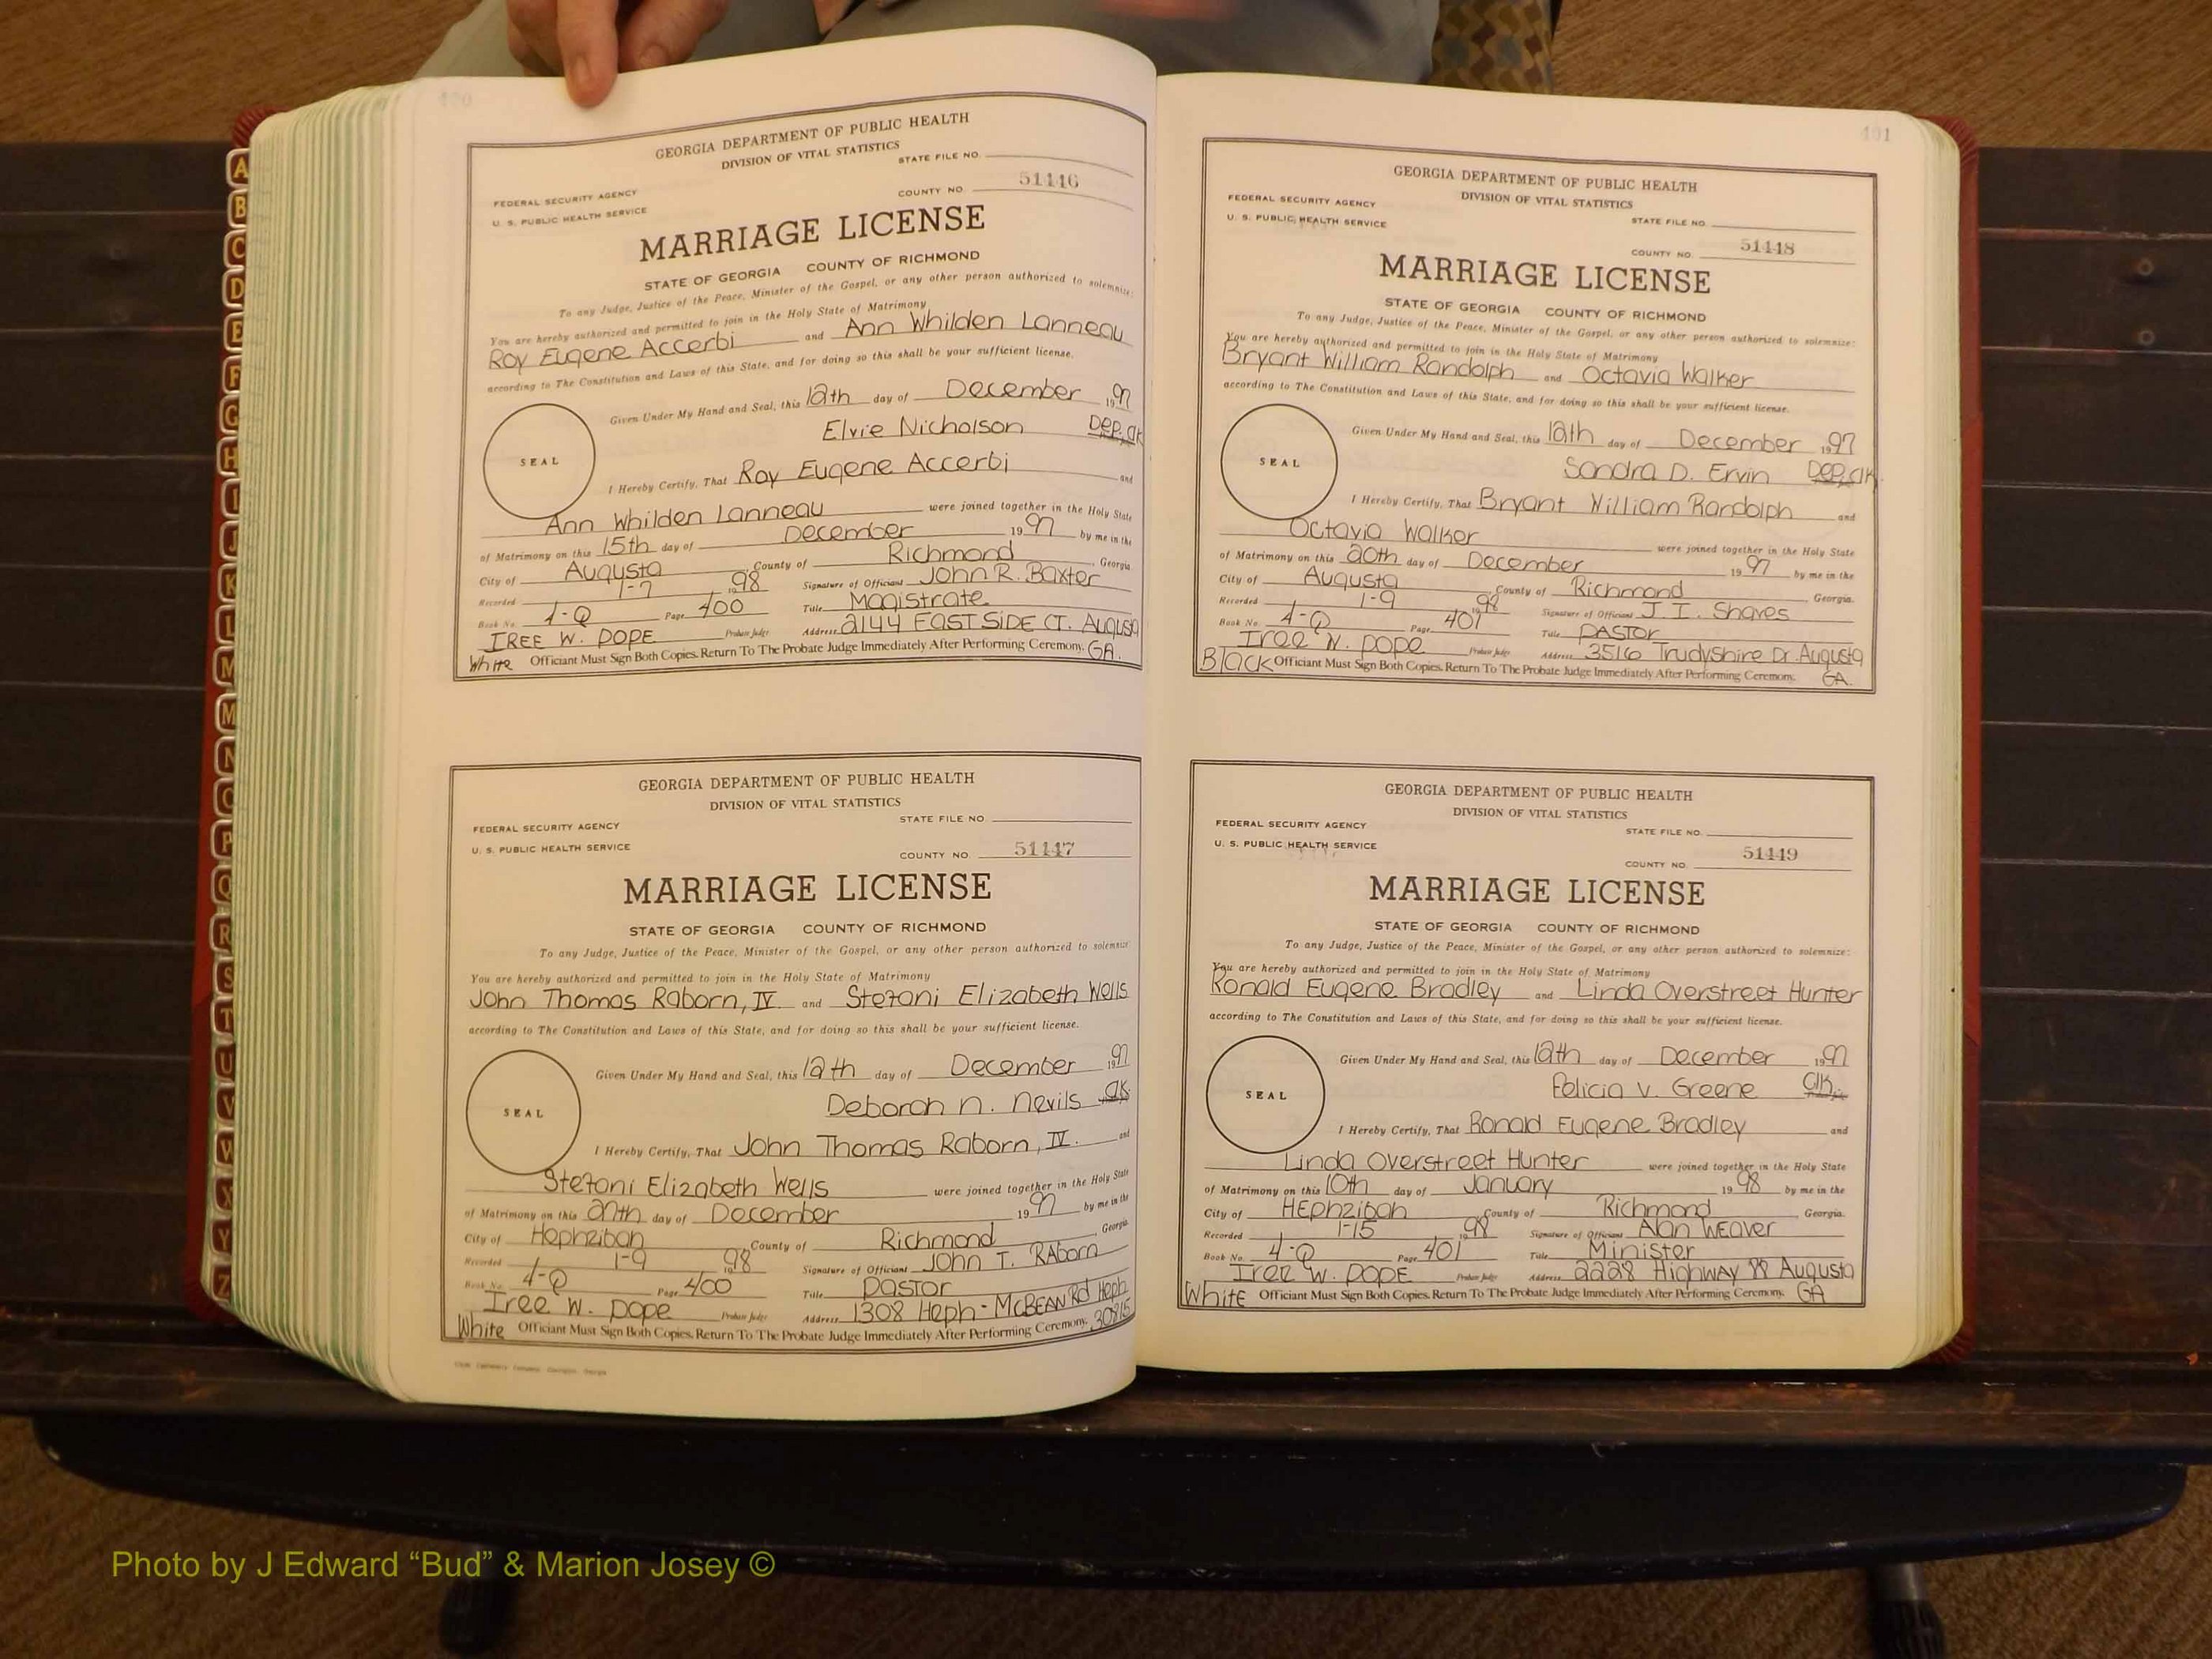 400
GEORGIA DEPARTMENT OF PUBLIC HEALTH
DIVISION OF VITAL STATISTICS
STATE FILE NO.
FEDERAL SECURITY AGENCY
COUNTY NO. 51446
U. S. PUBLIC HEALTH SERVICE
MARRIAGE LICENSE
STATE OF GEORGIA COUNTY OF RICHMOND
To any Judge, Justice of the Peace, Minister of the Gospel, or any other person authorized to solemnize:
You are hereby authorized and permitted to join in the Holy State of Matrimony
Roy Eugene Accerbi and Ann Whilden Lanneau
according to The Constitution and Laws of this State, and for doing so this shall be your sufficient license.
Given Under My Hand and Seal, this 12th day of December 1997
Elvie Nicholson Dep. Clk
SEAL
I Hereby Certify, That Roy Eugene Accerbi and
Ann Whilden Lanneau were joined together in the Holy State
of Matrimony on this 15th day of December 1997 by me in the
City of Augusta County of Richmond Georgia.
Recorded 1-7 1998 Signature of Officiant John R. Baxter
Book No. 4-Q Page 400 Title Magistrate
IREE W. POPE Probate Judge Address 2144 EAST SIDE CT. Augusta
White Officiant Must Sign Both Copies. Return To The Probate Judge Immediately After Performing Ceremony. GA.
GEORGIA DEPARTMENT OF PUBLIC HEALTH
DIVISION OF VITAL STATISTICS
STATE FILE NO.
FEDERAL SECURITY AGENCY
U. S. PUBLIC HEALTH SERVICE
COUNTY NO. 51447
MARRIAGE LICENSE
STATE OF GEORGIA COUNTY OF RICHMOND
To any Judge, Justice of the Peace, Minister of the Gospel, or any other person authorized to solemnize:
You are hereby authorized and permitted to join in the Holy State of Matrimony
John Thomas Raborn, IV and Stefani Elizabeth Wells
according to The Constitution and Laws of this State, and for doing so this shall be your sufficient license.
Given Under My Hand and Seal, this 12th day of December 1997
Deborah N. Nevils Clk
SEAL
I Hereby Certify, That John Thomas Raborn, IV. and
Stefani Elizabeth Wells were joined together in the Holy State
of Matrimony on this 27th day of December 1997 by me in the
City of Hephzibah County of Richmond Georgia.
Recorded 1-9 1998 Signature of Officiant John T. RAborn
Book No. 4-Q Page 400 Title Pastor
Iree W. Pope Probate Judge Address 1308 Heph-McBEAN Rd Heph
White Officiant Must Sign Both Copies. Return To The Probate Judge Immediately After Performing Ceremony. 30815
401
GEORGIA DEPARTMENT OF PUBLIC HEALTH
DIVISION OF VITAL STATISTICS
FEDERAL SECURITY AGENCY
STATE FILE NO.
U. S. PUBLIC HEALTH SERVICE
COUNTY NO. 51448
MARRIAGE LICENSE
STATE OF GEORGIA COUNTY OF RICHMOND
To any Judge, Justice of the Peace, Minister of the Gospel, or any other person authorized to solemnize:
You are hereby authorized and permitted to join in the Holy State of Matrimony
Bryant William Randolph and Octavia Walker
according to The Constitution and Laws of this State, and for doing so this shall be your sufficient license.
Given Under My Hand and Seal, this 12th day of December 1997
Sandra D. Ervin Dep. Clk
SEAL
I Hereby Certify, That Bryant William Randolph and
Octavia Walker were joined together in the Holy State
of Matrimony on this 20th day of December 1997 by me in the
City of Augusta County of Richmond Georgia.
Recorded 1-9 1998 Signature of Officiant J. I. Shaves
Book No. 4-Q Page 401 Title PASTOR
Iree W. Pope Probate Judge Address 3516 Trudyshire Dr. Augusta
Black Officiant Must Sign Both Copies. Return To The Probate Judge Immediately After Performing Ceremony. GA.
GEORGIA DEPARTMENT OF PUBLIC HEALTH
DIVISION OF VITAL STATISTICS
FEDERAL SECURITY AGENCY
STATE FILE NO.
U. S. PUBLIC HEALTH SERVICE
COUNTY NO. 51449
MARRIAGE LICENSE
STATE OF GEORGIA COUNTY OF RICHMOND
To any Judge, Justice of the Peace, Minister of the Gospel, or any other person authorized to solemnize:
You are hereby authorized and permitted to join in the Holy State of Matrimony
Ronald Eugene Bradley and Linda Overstreet Hunter
according to The Constitution and Laws of this State, and for doing so this shall be your sufficient license.
Given Under My Hand and Seal, this 12th day of December 1997
Felicia V. Greene Clk.
SEAL
I Hereby Certify, That Ronald Eugene Bradley and
Linda Overstreet Hunter were joined together in the Holy State
of Matrimony on this 10th day of January 1998 by me in the
City of HEphzibah County of Richmond Georgia.
Recorded 1-15 1998 Signature of Officiant Alan WEaver
Book No. 4-Q Page 401 Title Minister
Iree W. POPE Probate Judge Address 2228 Highway 88 Augusta
White Officiant Must Sign Both Copies. Return To The Probate Judge Immediately After Performing Ceremony. GA
A
B
C
D
E
F
G
H
I
J
K
L
M
M
N
O
P
Q
R
S
T
U
V
W
X
Y
Z
Photo by J Edward “Bud” & Marion Josey ©